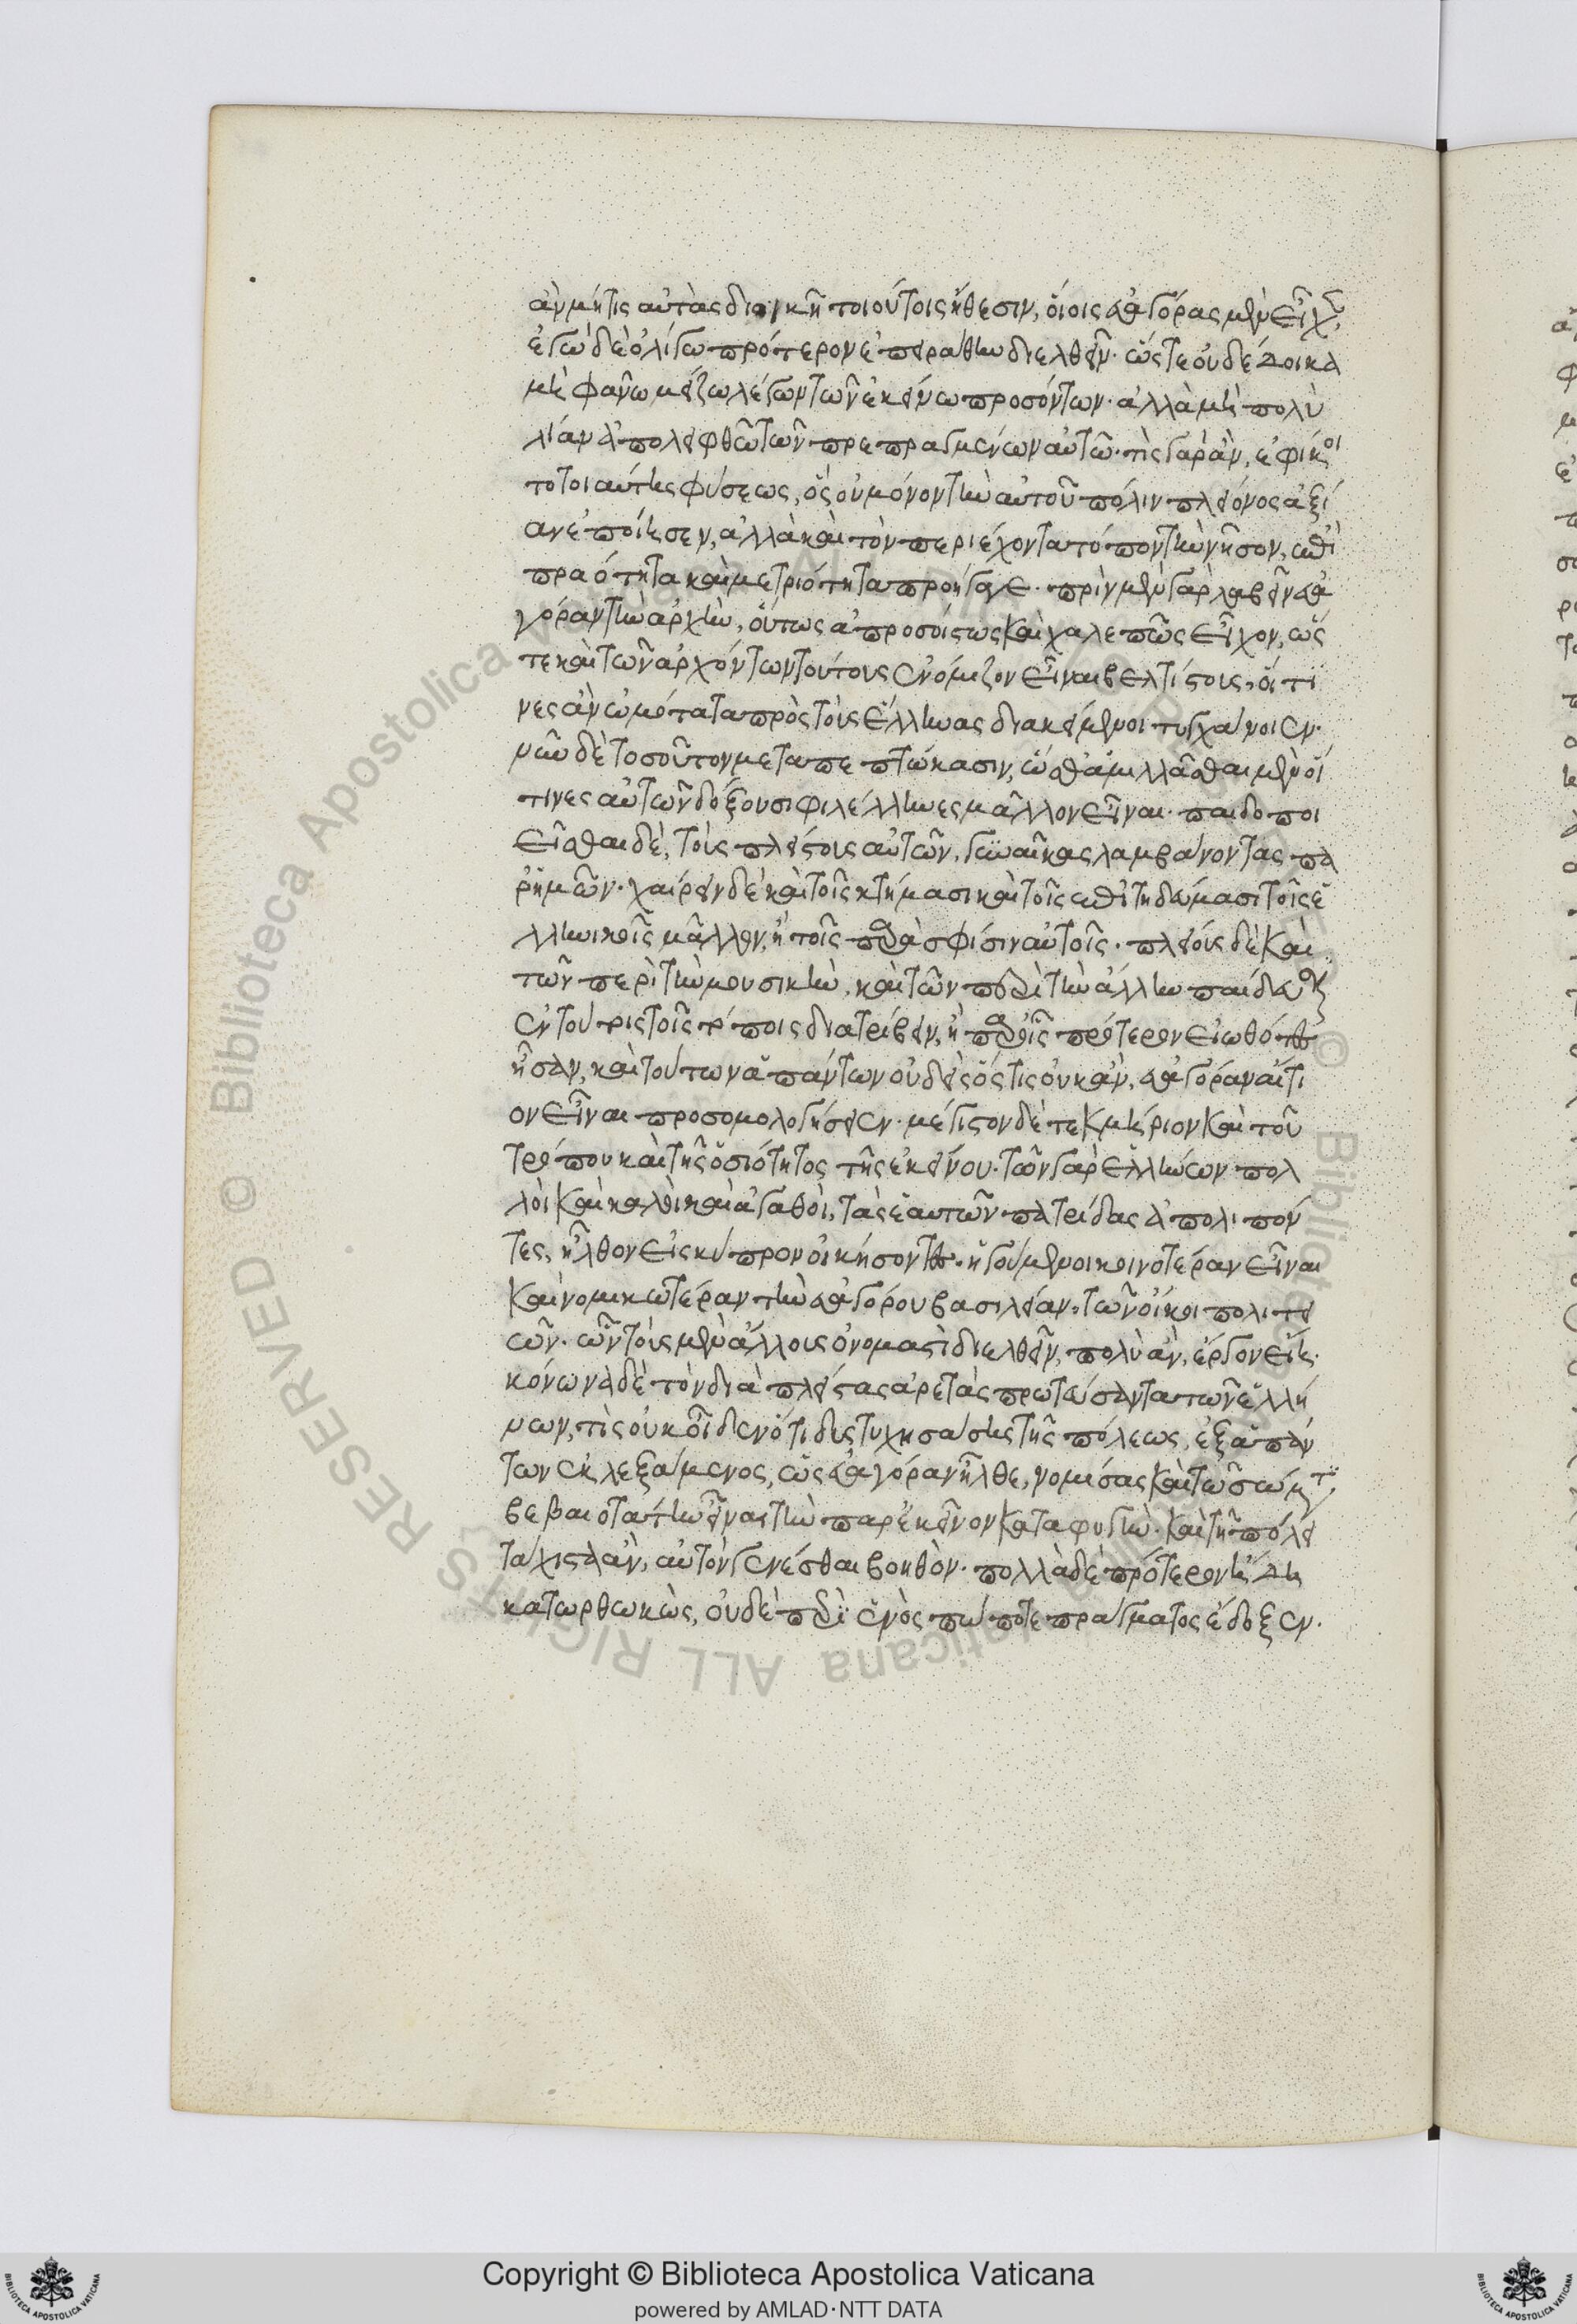 ἀν μήτις αὐτὰς διοικῆ τοιούτοις ἤθεσιν, οἵοις εὐαγόρας μὲν εἶχεν,
ἐγὼ δὲ ὀλίγω πρότερον ἐπειράθην διελθεῖν· ὥστε οὐ δέδοικα
μὴ φανῶ μείζω λέγων τῶν ἐκείνω προσόντων· ἀλλὰ μὴ πολὺ
λίαν ἀπολειφθῶ τῶν πρεπραγμένων αὐτῶ· τὶς γὰρ ἀν, ἐφίκοι
το τοιαύτης φύσεως, ὃς οὐ μόνον τὴν αὐτοῦ πόλιν πλείονος ἀξί
αν ἐποίησεν, ἀλλὰ καὶ τὸν περιέχοντα τόπον τὴν νῆσον, ἐπὶ
πραότητα καὶ μετριότητα προήγαγε· πρὶν μὲν γὰρ λαβεῖν εὐα
γόραν τὴν ἀρχὴν, οὕτως ἀπροσοίστως καὶ χαλεπῶς εἶχον, ὥσ
τε καὶ τῶν ἀρχόντων τούτους ἐνόμιζον εἶναι βελτίστους, οἵ τι
νες ἀν ὠμότατα πρὸς τοὺς ἕλληνας διακείμενοι τυγχάνοιεν·
νῦν δὲ τοσοῦτον μεταπεπτώκασιν, ὥσθ' ἁμιλλᾶσθαι μὲν οἵ
τινες αὐτῶν δόξουσι φιλέλληνες μᾶλλον εἶναι· παιδοποι
εῖσθαι δὲ, τοὺς πλείστους αὐτῶν, γυναῖκας λαμβάνοντας πα
ρ' ἡμῶν· χαίρειν δὲ καὶ τοῖς κτήμασι καὶ τοῖς ἐπιτηδεύμασι τοῖς ἑ
λληνικοῖς μᾶλλον, ἢ τοῖς παρὰ σφίσιν αὐτοῖς· πλείους δὲ καὶ
τῶν περὶ τὴν μουσικὴν, καὶ τῶν περὶ τὴν ἄλλην παίδευσιν
ἐν τούτοις τοῖς τόποις διατρίβειν, ἢ παρ' οἷς πρότερον εἰωθότες
ἦσαν, καὶ τούτων ἁπάντων οὐδεὶς ὅστις οὐκ ἀν, εὐαγόραν αἴτι
ον εἶναι προσομολογήσειεν· μέγιστον δὲ τεκμήριον καὶ τοῦ
τρόπου καὶ τῆς ὁσιότητος τῆς ἐκείνου· τῶν γὰρ ἑλλήνων πολ
λοὶ καὶ καλοὶ καὶ ἀγαθοὶ, τὰς ἑαυτῶν πατρίδας ἀπολιπόν
τες, ἦλθον εἰς κύπρον οἰκήσοντες· ἡγούμενοι κοινοτέραν εἶναι
καὶ νομικωτέραν τὴν εὐαγόρου βασιλείαν, τῶν οἴκοι πολιτει
ῶν· ὧν τοὺς μὲν ἄλλους ὀνομαστὶ διελθεῖν, πολὺ ἀν, ἔργον εἴη·
κόνωνα δὲ τὸν διὰ πλείστας ἀρετὰς πρωτεύσαντα τῶν ἑλλή
νων, τὶς οὐκ οἶδεν ὅτι δυστυχησάσης τῆς πόλεως, ἐξ ἁπάν
των ἐκλεξάμενος, ὡς εὐαγόραν ἦλθε, νομίσας καὶ τῶ σώματι
βεβαιοτάτην εἶναι τὴν παρ' ἐκεῖνον καταφυγὴν· καὶ τῆ πόλει
τάχιστα ἀν, αὐτὸν γενέσθαι βοηθὸν· πολλὰ δὲ πρότερον ἤδη
κατωρθωκὼς, οὐδὲ περὶ ἑνὸς πώποτε πράγματος ἔδοξεν·